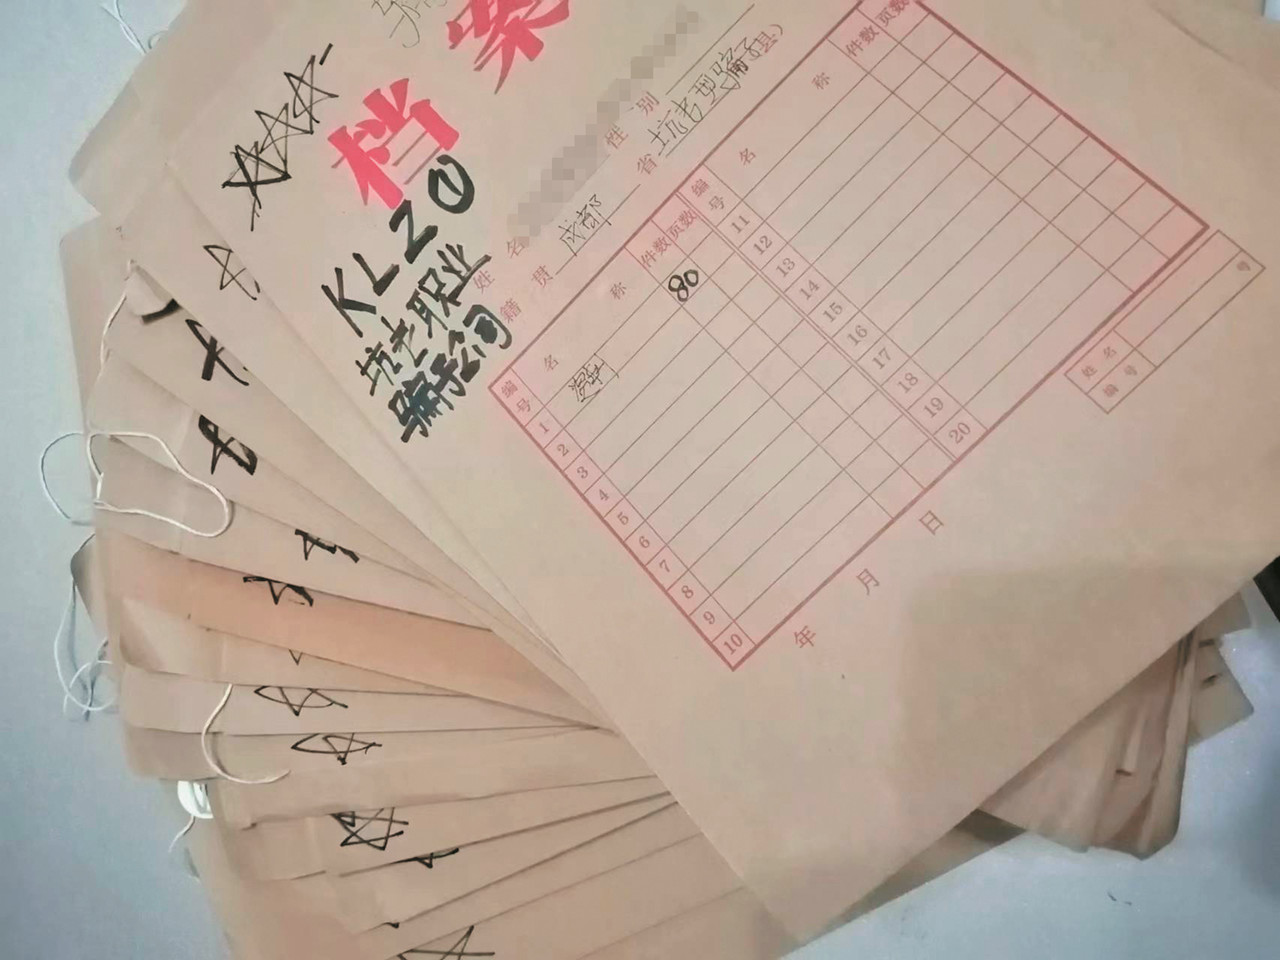 档案
KLZ①
坑老职业
骗子公司
姓名 性别
籍贯 成都 省 坑老型骗子(县)
编号 名称 件数 页数 编号 名称 件数 页数
1 80 11
2 12
3 13
4 14
5 15
6 16
7 17
8 18
9 19
10 20
年 月 日
姓名
编号 号